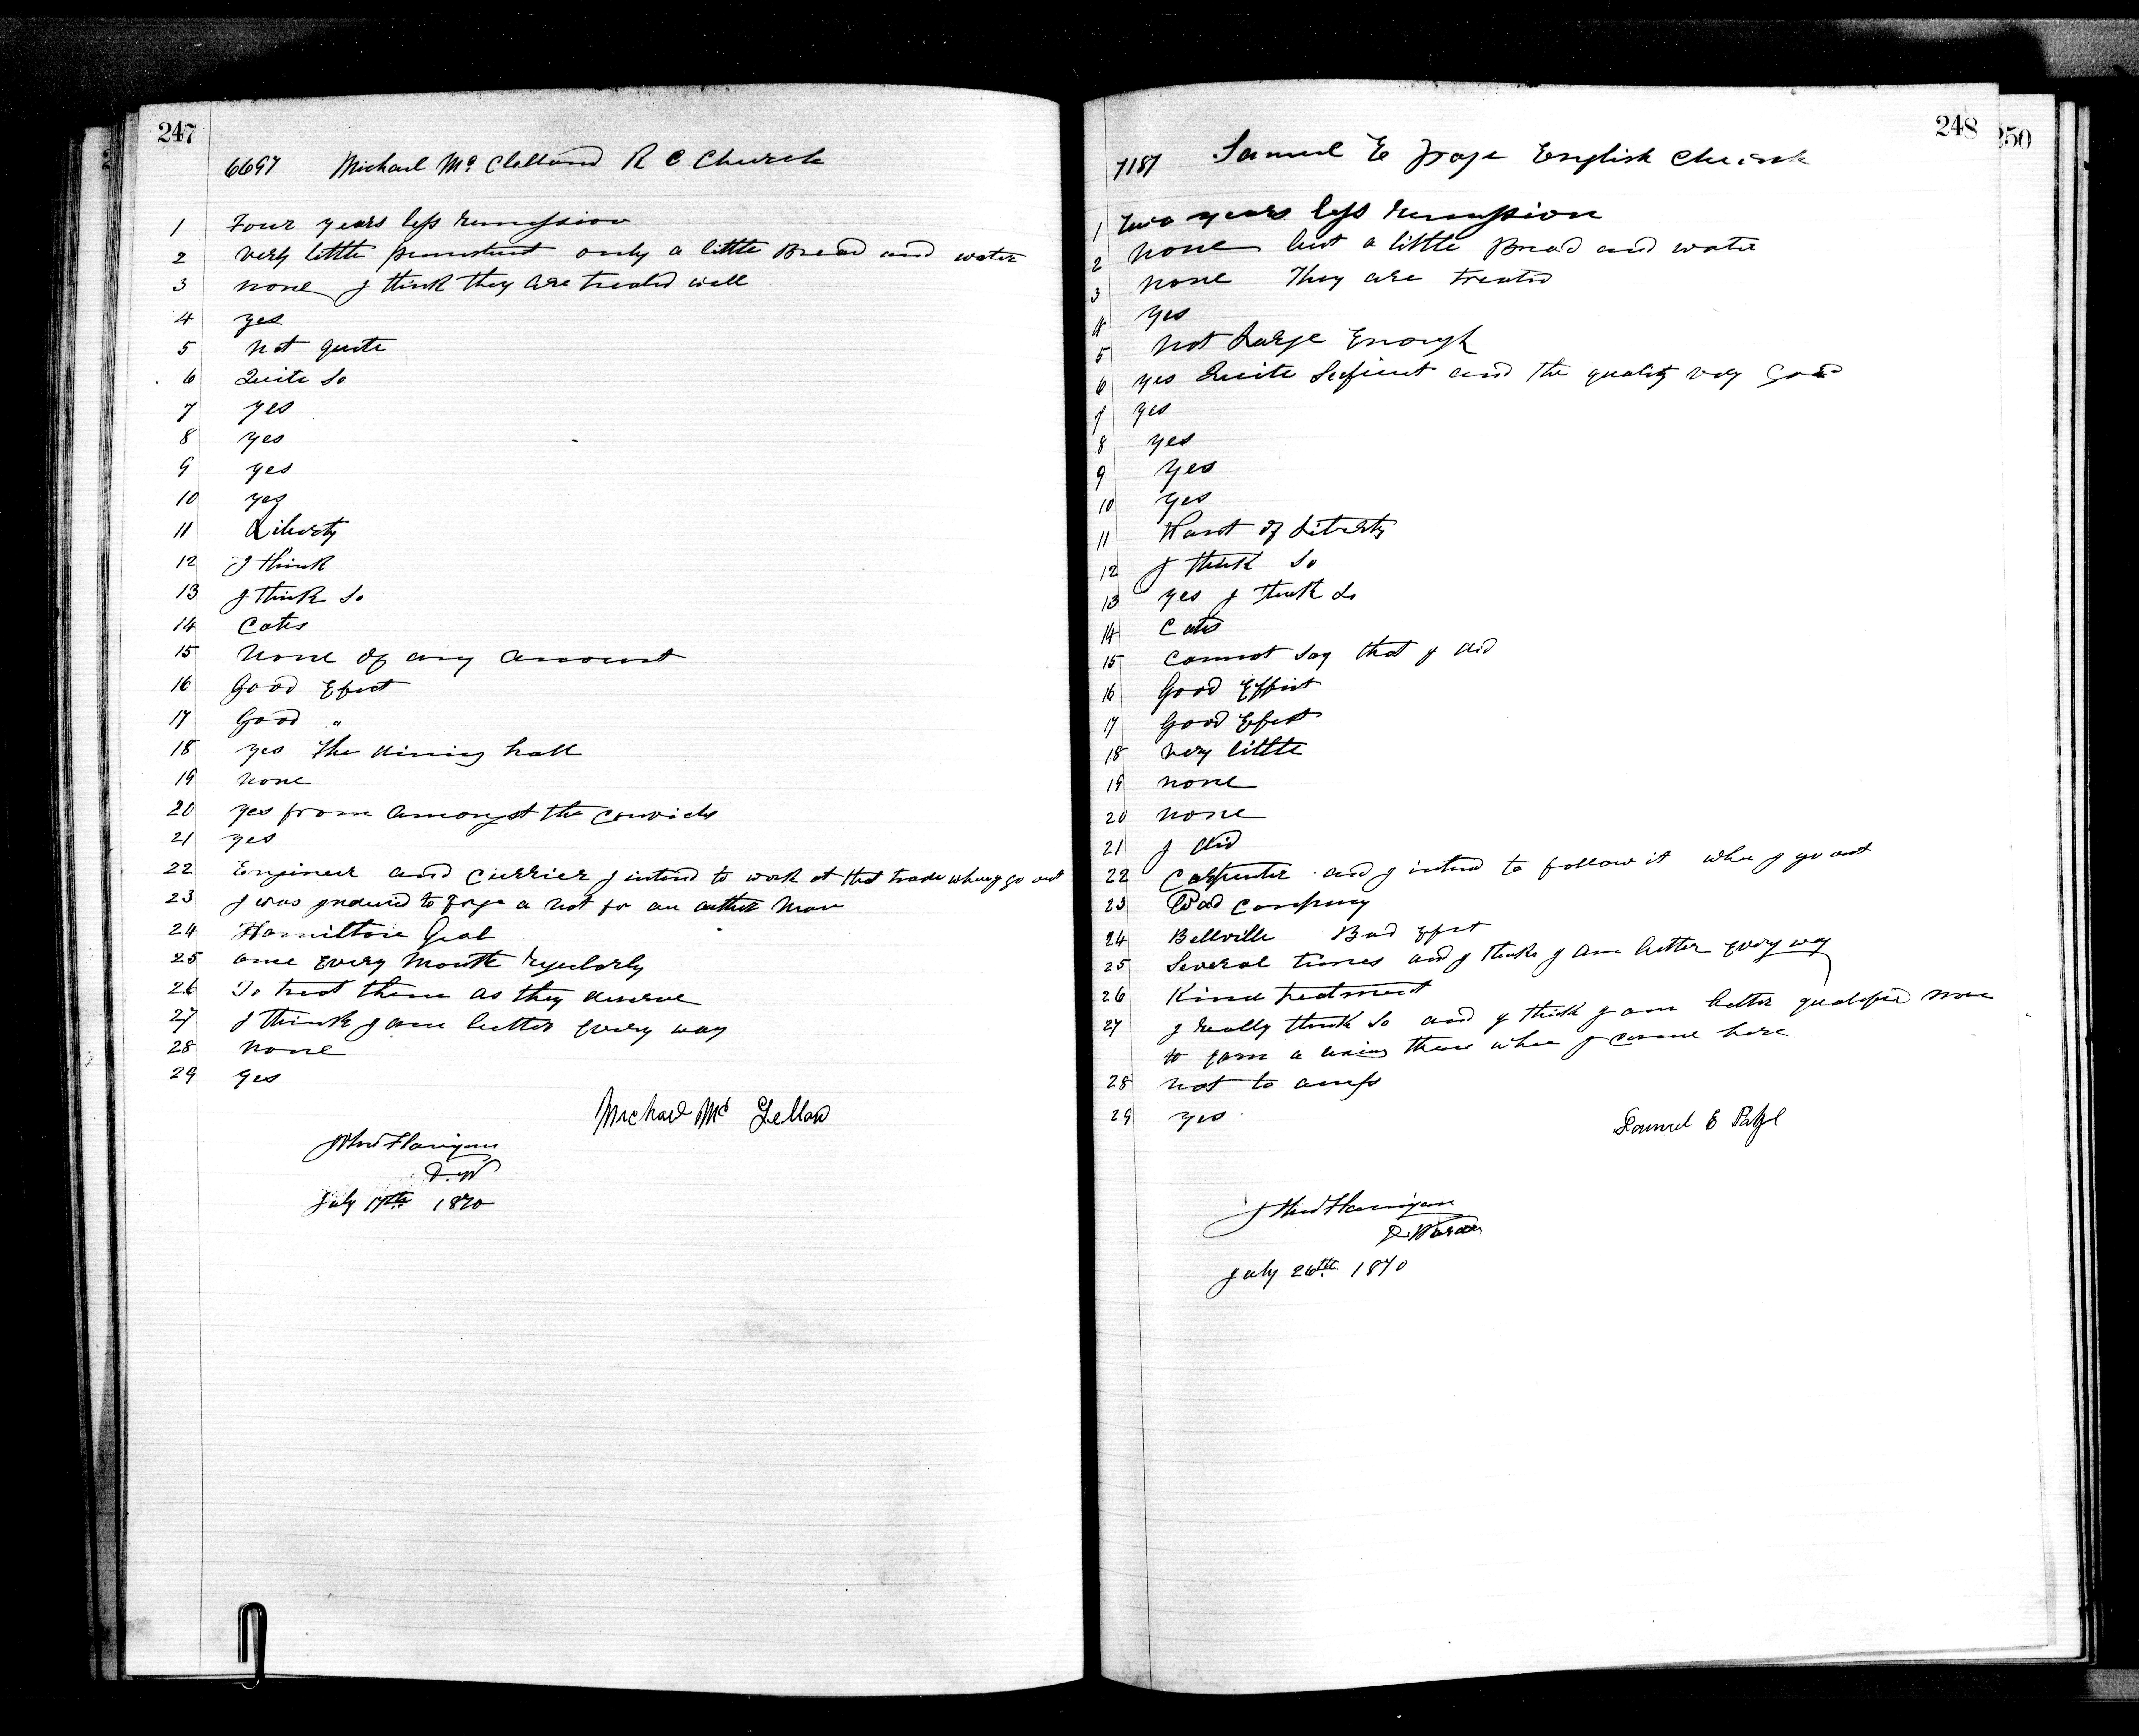 247
6697 Michael Mc Clelland R C Church
1 Four years less remission
2 very little punnishent only a little Bread and water
3 none I think they are treated well
4 yes
5 not quite
6 Quite So
7 yes
8 yes
9 yes
10 yes
11 Liberty
12 I think
13 I think So
14 Cotes
15 None of any amount
16 Good Efect
17 Good "
18 yes the dining hall
19 none
20 yes from amongst the convicts
21 yes
22 Engineer and Currier I intend to work at that trade when I go out
23 I was induced to forge a not for an other man
24 Hamilton Goal
25 once Every Month regularly
26 To treat them as they deserve
27 I think I am better Every way
28 none
29 yes
Michael Mc
John Flanigan
D. W
July 17th 1870
248
250
7187 Samuel E Page English Church
1 Two years less remission
2 none but a little Bread and water
3 none They are treated
4 yes
5 not Large Enough
6 yes Quite Suficient and the quality very Good
7 yes
8 yes
9 yes
10 yes
11 Want of Liberty
12 I think So
13 yes I think So
14 Cotes
15 Cannot Say that I did
16 Good Effect
17 Good Efect
18 very little
19 none
20 none
21 I did
22 Carpenter and I intend to follow it when I go out
23 Bad Company
24 Bellville Bad Efect
25 Several times and I think I am better Every way
26 Kind treatment
27 I really think So and I think I am better qualified now
to earn a living then when I came here
28 not to amess
29 yes
Samuel E Page
John Flanigan
D. Warden
July 26th 1870